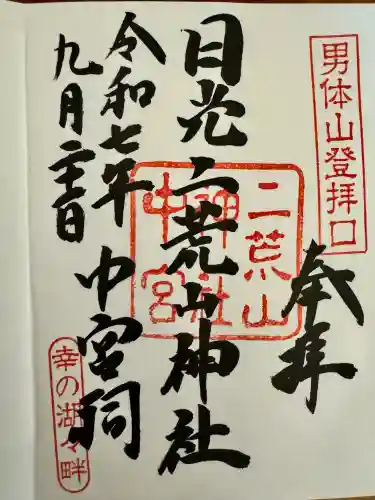 男体山登拝口
奉拝
日光二荒山神社
中宮祠
令和七年
九月二十三日
二荒山
神社
中宮
幸の湖々畔